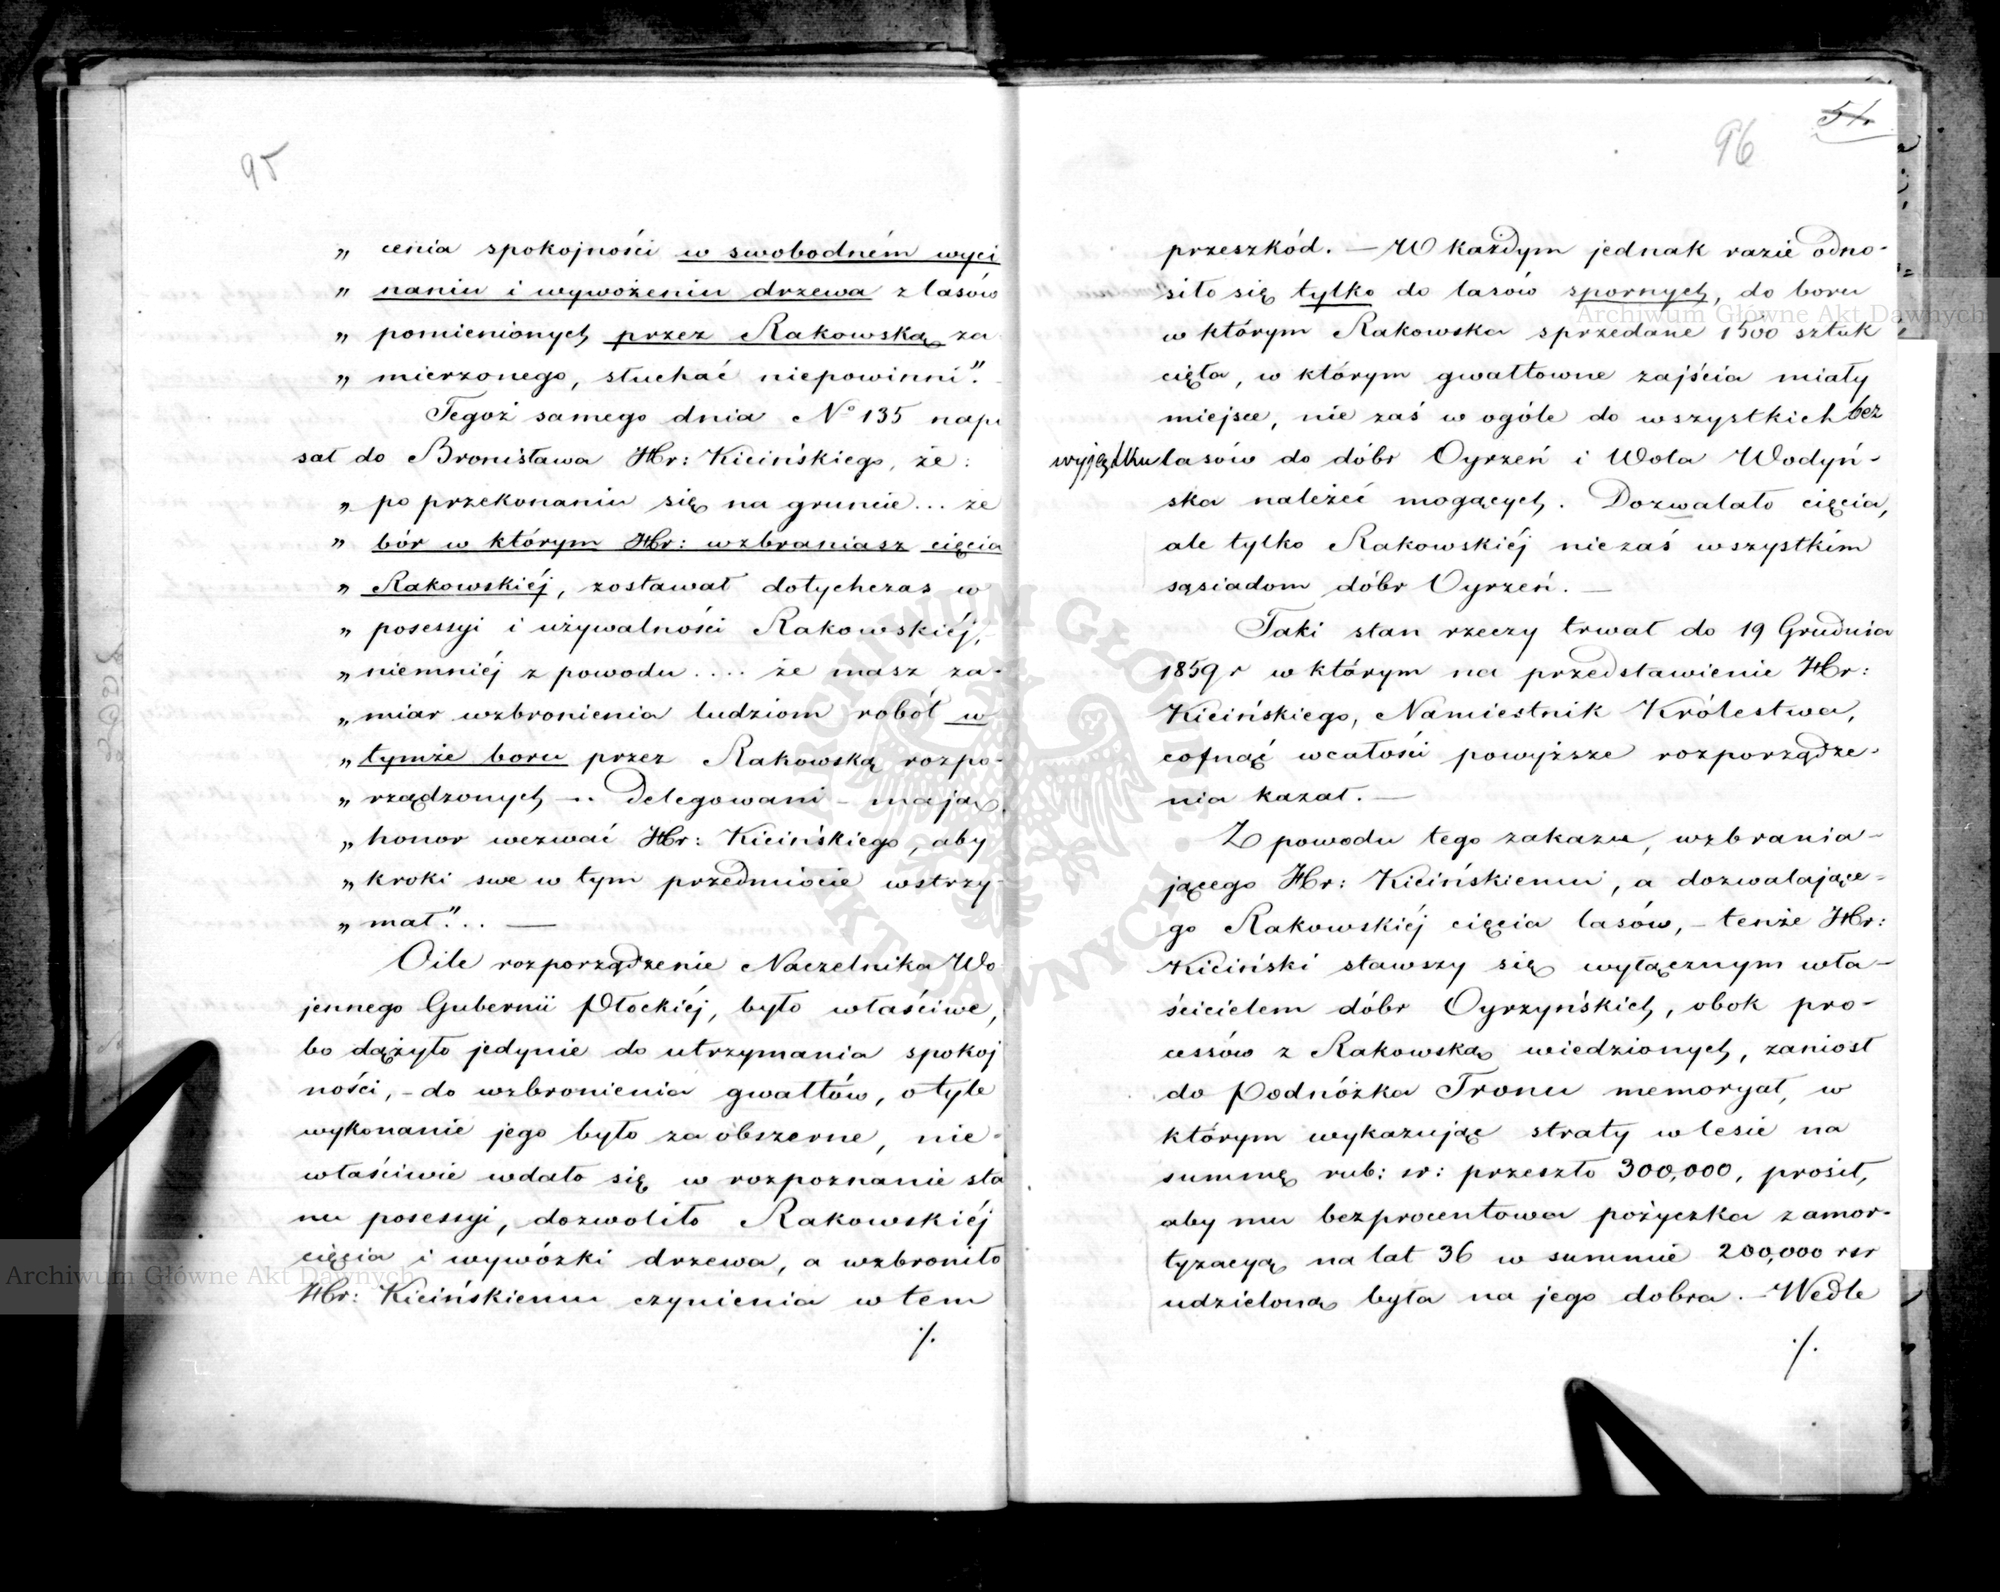 95
„ cenia spokojności w swobodném wyci
„ naniu i wywożeniu drzewa z lasów
„ pomienionych przez Rakowską za
„ mierzonego, słuchać niepowinni".
Tegoż samego dnia № 135 napi
sał do Bronisława Hr: Kicińskiego, że:
„ po przekonaniu się na gruncie... że
„ bór w którym Hr: wzbraniasz cięcia
„ Rakowskiéj, zostawał dotychczas w
„ posessyi i używalności Rakowskiéj,
„ niemniéj z powodu .... że masz za-
„ miar wzbronienia ludziom robót w
„ tymże boru przez Rakowską rozpo-
„ rządzonych -.. Delegowani - mają
„ honor wezwać Hr: Kicińskiego, aby
„ kroki swe w tym przedmiocie wstrzy-
„ mał"... —
O ile rozporządzenie Naczelnika Wo
jennego Gubernii Płockiéj, było właściwe,
bo dążyło jedynie do utrzymania spokoj
ności, - do wzbronienia gwałtów, o tyle
wykonanie jego było za obszerne, nie-
właściwie wdało się w rozpoznanie sta
nu posessyi, dozwoliło Rakowskiéj
cięcia i wywózki drzewa, a wzbroniło
Hr: Kicińskiemu czynienia w tem
./.
54
96
przeszkód. — W każdym jednak razie odno-
siło się tylko do lasów spornych, do boru
w którym Rakowska sprzedane 1500 sztuk
cięła, w którym gwałtowne zajścia miały
miejsce, nie zaś w ogóle do wszystkich bez
wyjątku lasów do dóbr Oyrzeń i Wola Wodyń-
ska należeć mogących. Dozwalało cięcia,
ale tylko Rakowskiéj niezaś wszystkim
sąsiadom dóbr Oyrzeń. —
Taki stan rzeczy trwał do 19 Grudnia
1859 r w którym na przedstawienie Hr:
Kicińskiego, Namiestnik Królestwa,
cofnąć wcałości powyższe rozporządze-
nia kazał. —
Z powodu tego zakazu, wzbrania-
jącego Hr: Kicińskiemu, a dozwalające-
go Rakowskiéj cięcia lasów, - tenże Hr:
Kiciński stawszy się wyłącznym wła-
ścicielem dóbr Oyrzyńskich, obok pro-
cessów z Rakowską wiedzionych, zaniósł
do Podnóżka Tronu memoryał, w
którym wykazując straty w lesie na
summę rub: sr: przeszło 300,000, prosił,
aby mu bezprocentowa pożyczka z amor-
tyzacyą na lat 36 w summie 200,000 rsr
udzieloną była na jego dobra. — Wedle
./.
Archiwum Główne Akt Dawnych
Archiwum Główne Akt Dawnych
ARCHIWUM GŁÓWNE AKT DAWNYCH